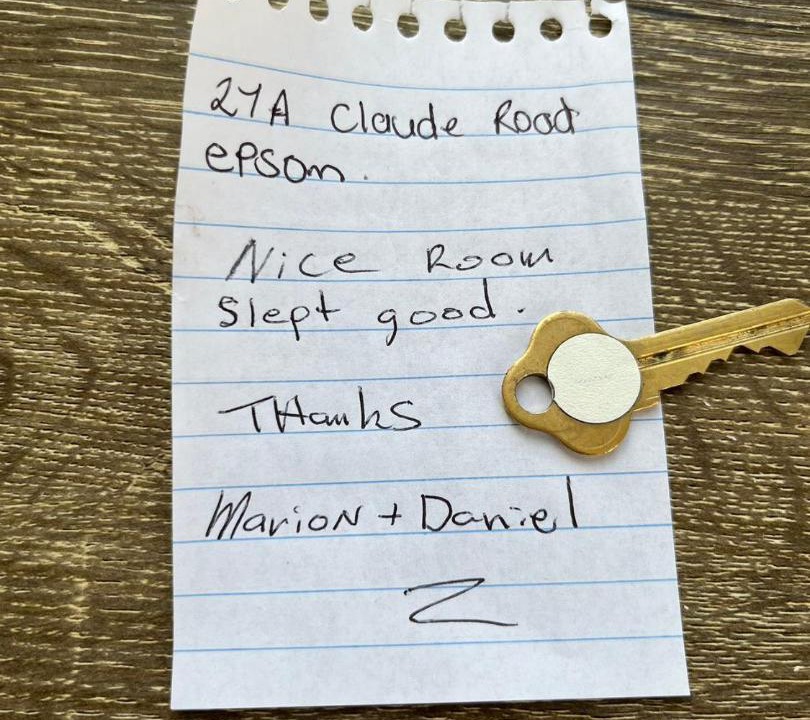 27A Claude Road
epson.
Nice Room
Slept good.
THanks
MarioN + Daniel
Z